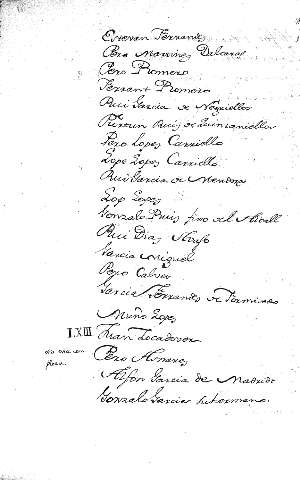 Estevan Ferrandez
Pero Martines
Pero Romero
Ferrant Romero
Rui Garcia de Negriellos
Ruis de Quintaniella
Pero Lopes Carriello
Lope Lopes Carriello
Rui Garcia de Mendoza
Lop Lopes
Gonzalo Ruis fijo del Alcall
Rui Dias
Garcia Miguel
Pero Calvo
Garcia Ferrandes de
Muño Lopes
LXIII
Juan Tocadevor
Pero
Alfon Garcia de Madrid
Gonzalo Garcia su hermano